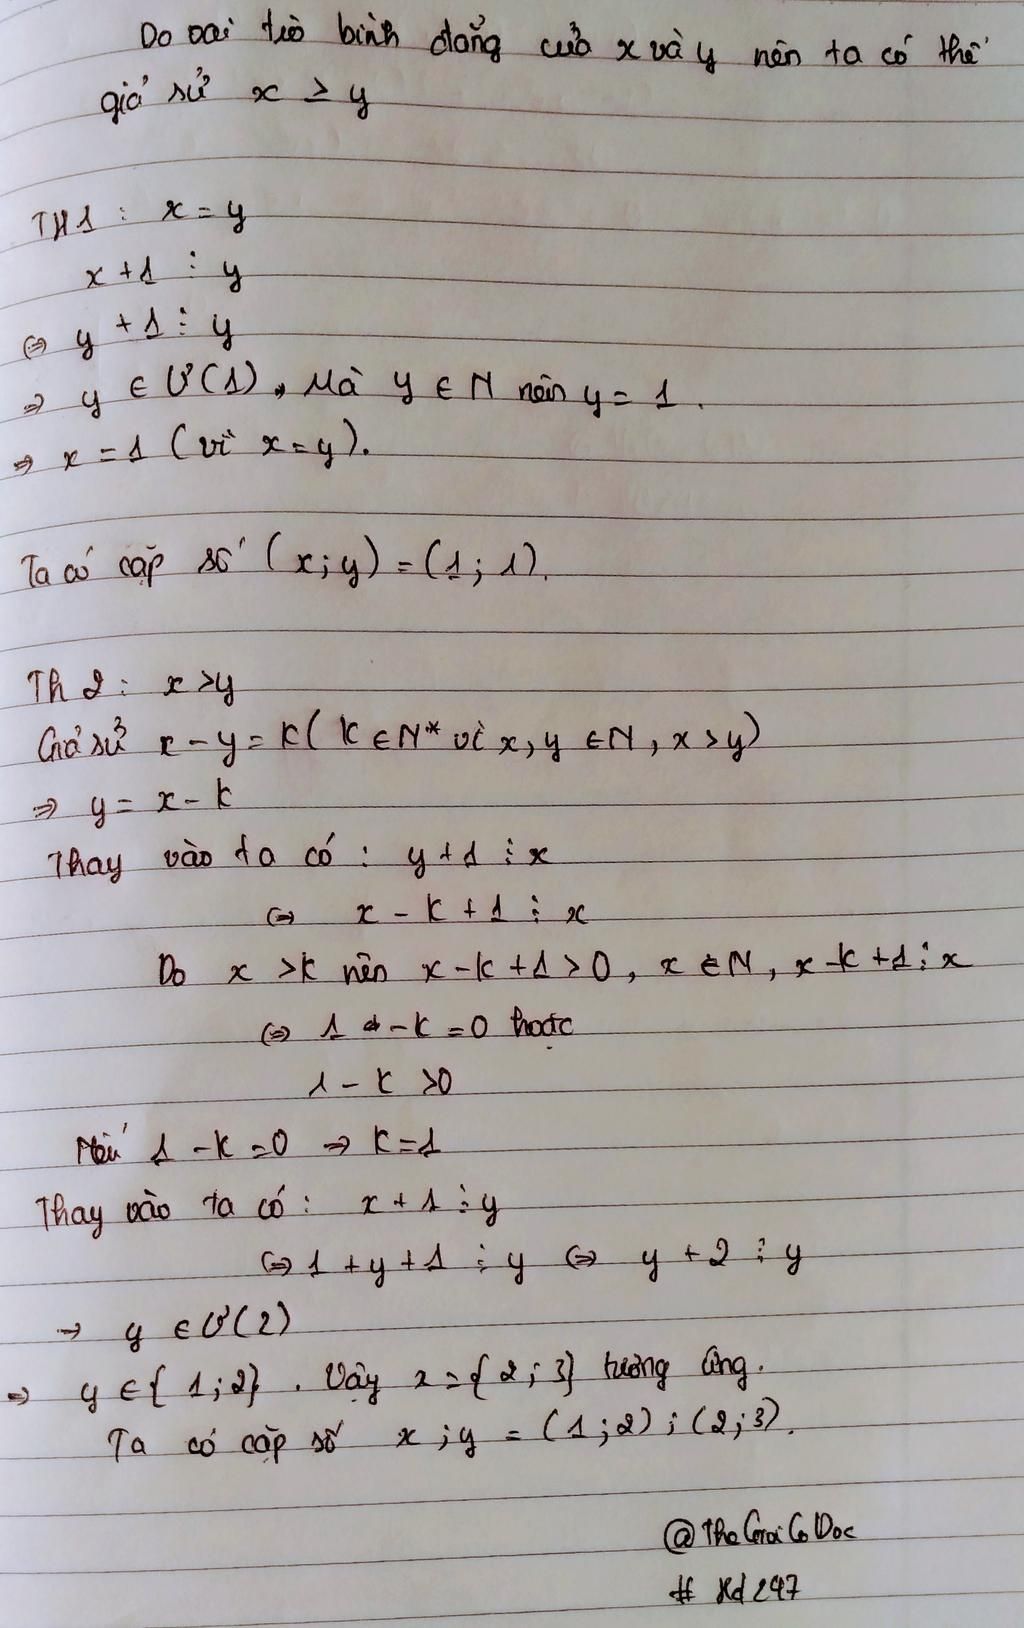 Do vai trò bình đẳng của x và y nên ta có thể
giả sử x ≥ y
TH1 : x = y
x + 1 ⋮ y
⇔ y + 1 ⋮ y
⇒ y ∈ Ư(1), Mà y ∈ N nên y = 1.
⇒ x = 1 (vì x = y).
Ta có cặp số (x; y) = (1; 1).
Th 2 : x > y
Giả sử x - y = k ( k ∈ N* vì x, y ∈ N, x > y)
⇒ y = x - k
Thay vào ta có : y + 1 ⋮ x
⇔ x - k + 1 ⋮ x
Do x > k nên x - k + 1 > 0, x ∈ N, x - k + 1 ⋮ x
⇔ 1 - k = 0 hoặc
1 - k > 0
Nếu 1 - k = 0 ⇒ k = 1
Thay vào ta có : x + 1 ⋮ y
⇔ 1 + y + 1 ⋮ y ⇔ y + 2 ⋮ y
⇒ y ∈ Ư(2)
⇒ y ∈ { 1; 2}. Vậy x = {2; 3} tương ứng.
Ta có cặp số x ; y = (1; 2) ; (2; 3).
@TheGioiCoDoc
# Kd247